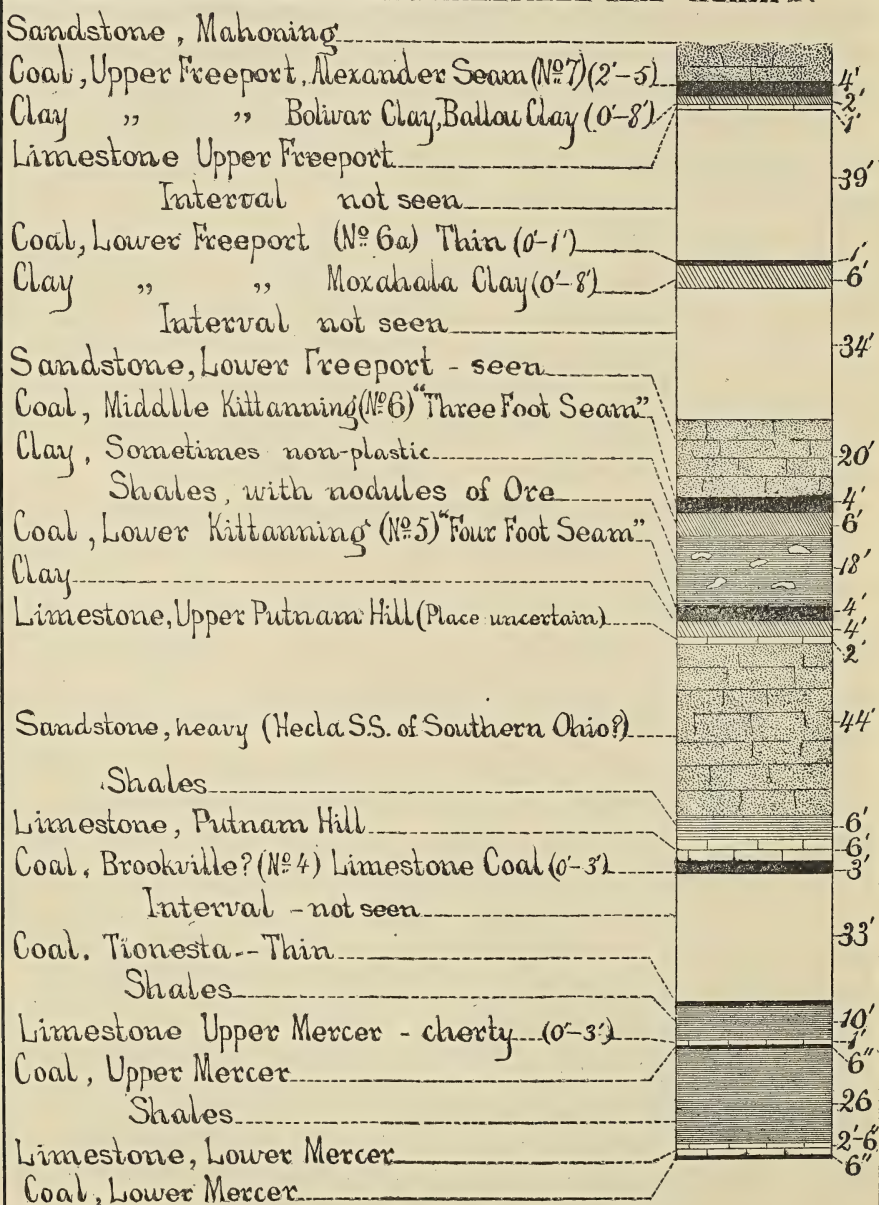 Sandstone, Mahoning
Coal, Upper Freeport, Alexander Seam (Nº 7) (2'-5) 4'
Clay „ „ Bolivar Clay, Ballou Clay (0'-8') 2'
1'
Limestone Upper Freeport
Interval not seen 39'
Coal, Lower Freeport (Nº 6a) Thin (0'-1') 1'
Clay „ „ Moxahala Clay (0'-8') 6'
Interval not seen 34'
Sandstone, Lower Freeport - seen
Coal, Middlle Kittanning (Nº 6) "Three Foot Seam"
Clay, Sometimes non-plastic 20'
Shales, with nodules of Ore 4'
Coal, Lower Kittanning (Nº 5) "Four Foot Seam" 6'
Clay 18'
Limestone, Upper Putnam Hill (Place uncertain) 4'
4'
2'
Sandstone, heavy (Hecla S.S. of Southern Ohio?) 44'
Shales
Limestone, Putnam Hill 6'
Coal, Brookville? (Nº 4) Limestone Coal (0'-3') 6'
3'
Interval - not seen
Coal. Tionesta -- Thin 33'
Shales
Limestone Upper Mercer - cherty (0'-3') 10'
1'
Coal, Upper Mercer 6"
Shales 26
Limestone, Lower Mercer 2'-6
Coal, Lower Mercer 6"